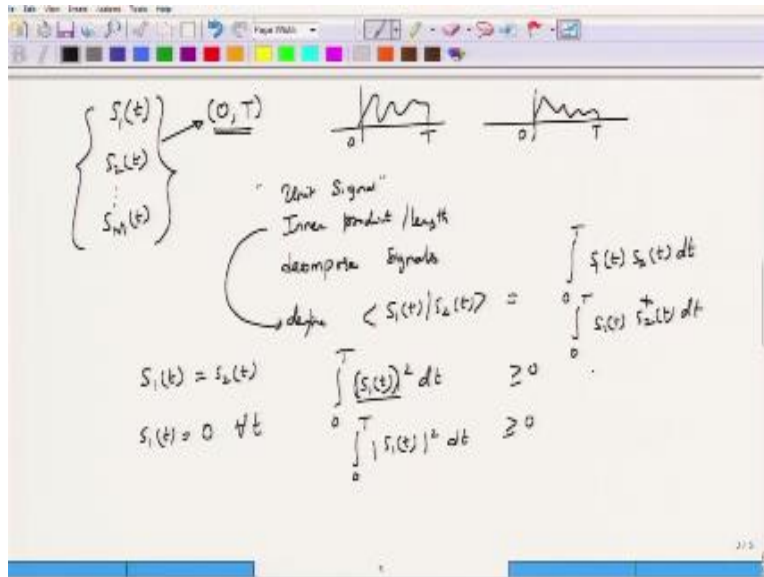 Edit View Insert Actions Tools Help
Page Width
B I
S₁(t)
S₂(t)
⋮
S_M(t)
(0, T)
0 T
0 T
"Unit Signal"
Inner product / length
decompose signals
define < S₁(t) | S₂(t) > = ∫₀ᵀ S₁(t) S₂(t) dt
∫₀ᵀ S₁(t) S₂*(t) dt
S₁(t) = S₂(t) ∫₀ᵀ (S₁(t))² dt ≥ 0
S₁(t) = 0 ∀t ∫₀ᵀ |S₁(t)|² dt ≥ 0